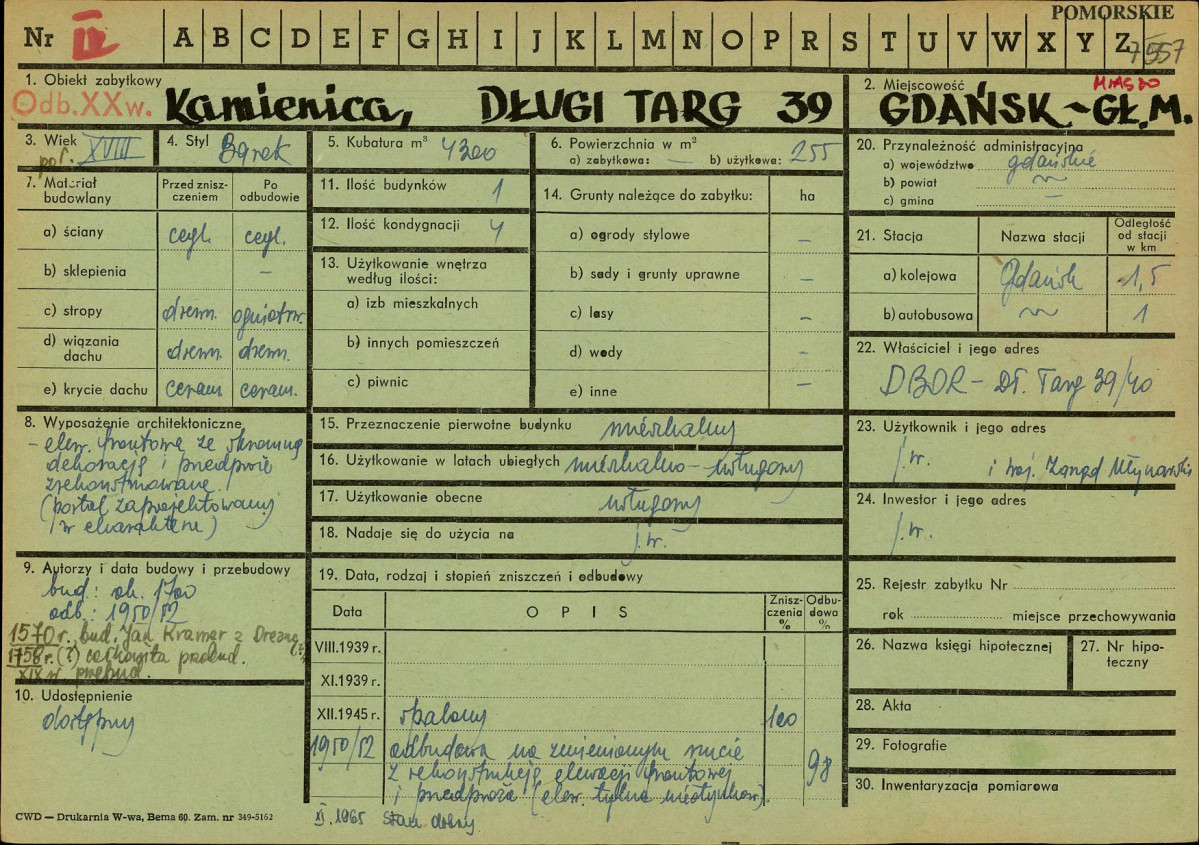 POMORSKIE
Nr II A B C D E F G H I J K L M N O P R S T U V W X Y Z
7557
1. Obiekt zabytkowy
Odb. XX w. Kamienica, DŁUGI TARG 39
2. Miejscowość MIASTO
GDAŃSK-GŁ.M.
3. Wiek
poł. XVIII
4. Styl Barok
5. Kubatura m³ 4300
6. Powierzchnia w m²
a) zabytkowa: — b) użytkowa: 255
7. Materiał budowlany
Przed zniszczeniem
Po odbudowie
a) ściany cegl. cegl.
b) sklepienia –
c) stropy drewn. ogniotrw.
d) wiązania dachu drewn. drewn.
e) krycie dachu ceram. ceram.
8. Wyposażenie architektoniczne
– elew. frontowa ze skromną
dekoracją i przedproże
zrekonstruowane
(portal zaprojektowany
w charakterze)
9. Autorzy i data budowy i przebudowy
bud.: ok. 1700
odb.: 1950/52
1570 r. bud. Jan Kramer z Drezna
1758 r. (?) całkowita przebud.
XIX w. przebud.
10. Udostępnienie
dostępny
11. Ilość budynków 1
12. Ilość kondygnacji 4
13. Użytkowanie wnętrza
według ilości:
a) izb mieszkalnych
b) innych pomieszczeń
c) piwnic
14. Grunty należące do zabytku: ha
a) ogrody stylowe –
b) sady i grunty uprawne –
c) lasy –
d) wody –
e) inne –
15. Przeznaczenie pierwotne budynku mieszkalny
16. Użytkowanie w latach ubiegłych mieszkalno-usługowy
17. Użytkowanie obecne usługowy
18. Nadaje się do użycia na j.w.
19. Data, rodzaj i stopień zniszczeń i odbudowy
Data OPIS Zniszczenia % Odbudowa %
VIII.1939 r.
XI.1939 r.
XII.1945 r. spalony 100
1950/52 odbudowa na zmienionym rzucie
z rekonstrukcją elewacji frontowej
i przedproża (elew. tylna nietynkow.). 98
XI.1965 stan dobry
20. Przynależność administracyjna
a) województwo gdańskie
b) powiat
c) gmina –
21. Stacja Nazwa stacji Odległość od stacji w km
a) kolejowa Gdańsk 1,5
b) autobusowa 1
22. Właściciel i jego adres
DBOR – Dł. Targ 39/40
23. Użytkownik i jego adres
j.w. i woj. Zarząd Młynarski
24. Inwestor i jego adres
j.w.
25. Rejestr zabytku Nr
rok miejsce przechowywania
26. Nazwa księgi hipotecznej
27. Nr hipoteczny
28. Akta
29. Fotografie
30. Inwentaryzacja pomiarowa
CWD — Drukarnia W-wa, Bema 60. Zam. nr 349-5162